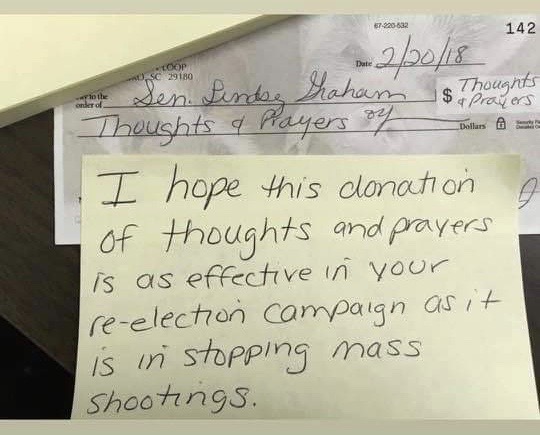 67-220-532
142
LOOP
SC 29180
Date 2/20/18
order of Sen. Lindsey Graham $ Thoughts & Prayers
Thoughts & Prayers Dollars
I hope this donation
of thoughts and prayers
is as effective in your
re-election campaign as it
is in stopping mass
shootings.